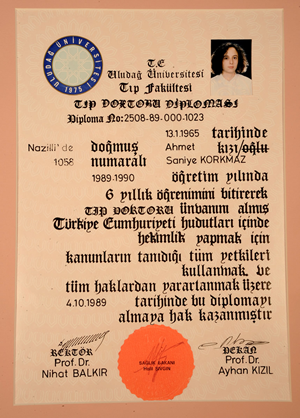 ULUDAĞ ÜNİVERSİTESİ
1975
T.C
Uludağ Üniversitesi
Tıp Fakültesi
TIP DOKTORU DİPLOMASI
Diploma No: 2508-89-000-1023
13.1.1965 tarihinde
Nazilli'de doğmuş Ahmet kızı/oğlu
1058 numaralı Saniye KORKMAZ
1989-1990 öğretim yılında
6 yıllık öğrenimini bitirerek
TIP DOKTORU ünvanını almış
Türkiye Cumhuriyeti hudutları içinde
hekimlik yapmak için
kanunların tanıdığı tüm yetkileri
kullanmak ve
tüm haklardan yararlanmak üzere
4.10.1989 tarihinde bu diplomayı
almaya hak kazanmıştır
REKTÖR
Prof.Dr.
Nihat BALKIR
SAĞLIK BAKANI
DEKAN
Prof.Dr.
Ayhan KIZIL